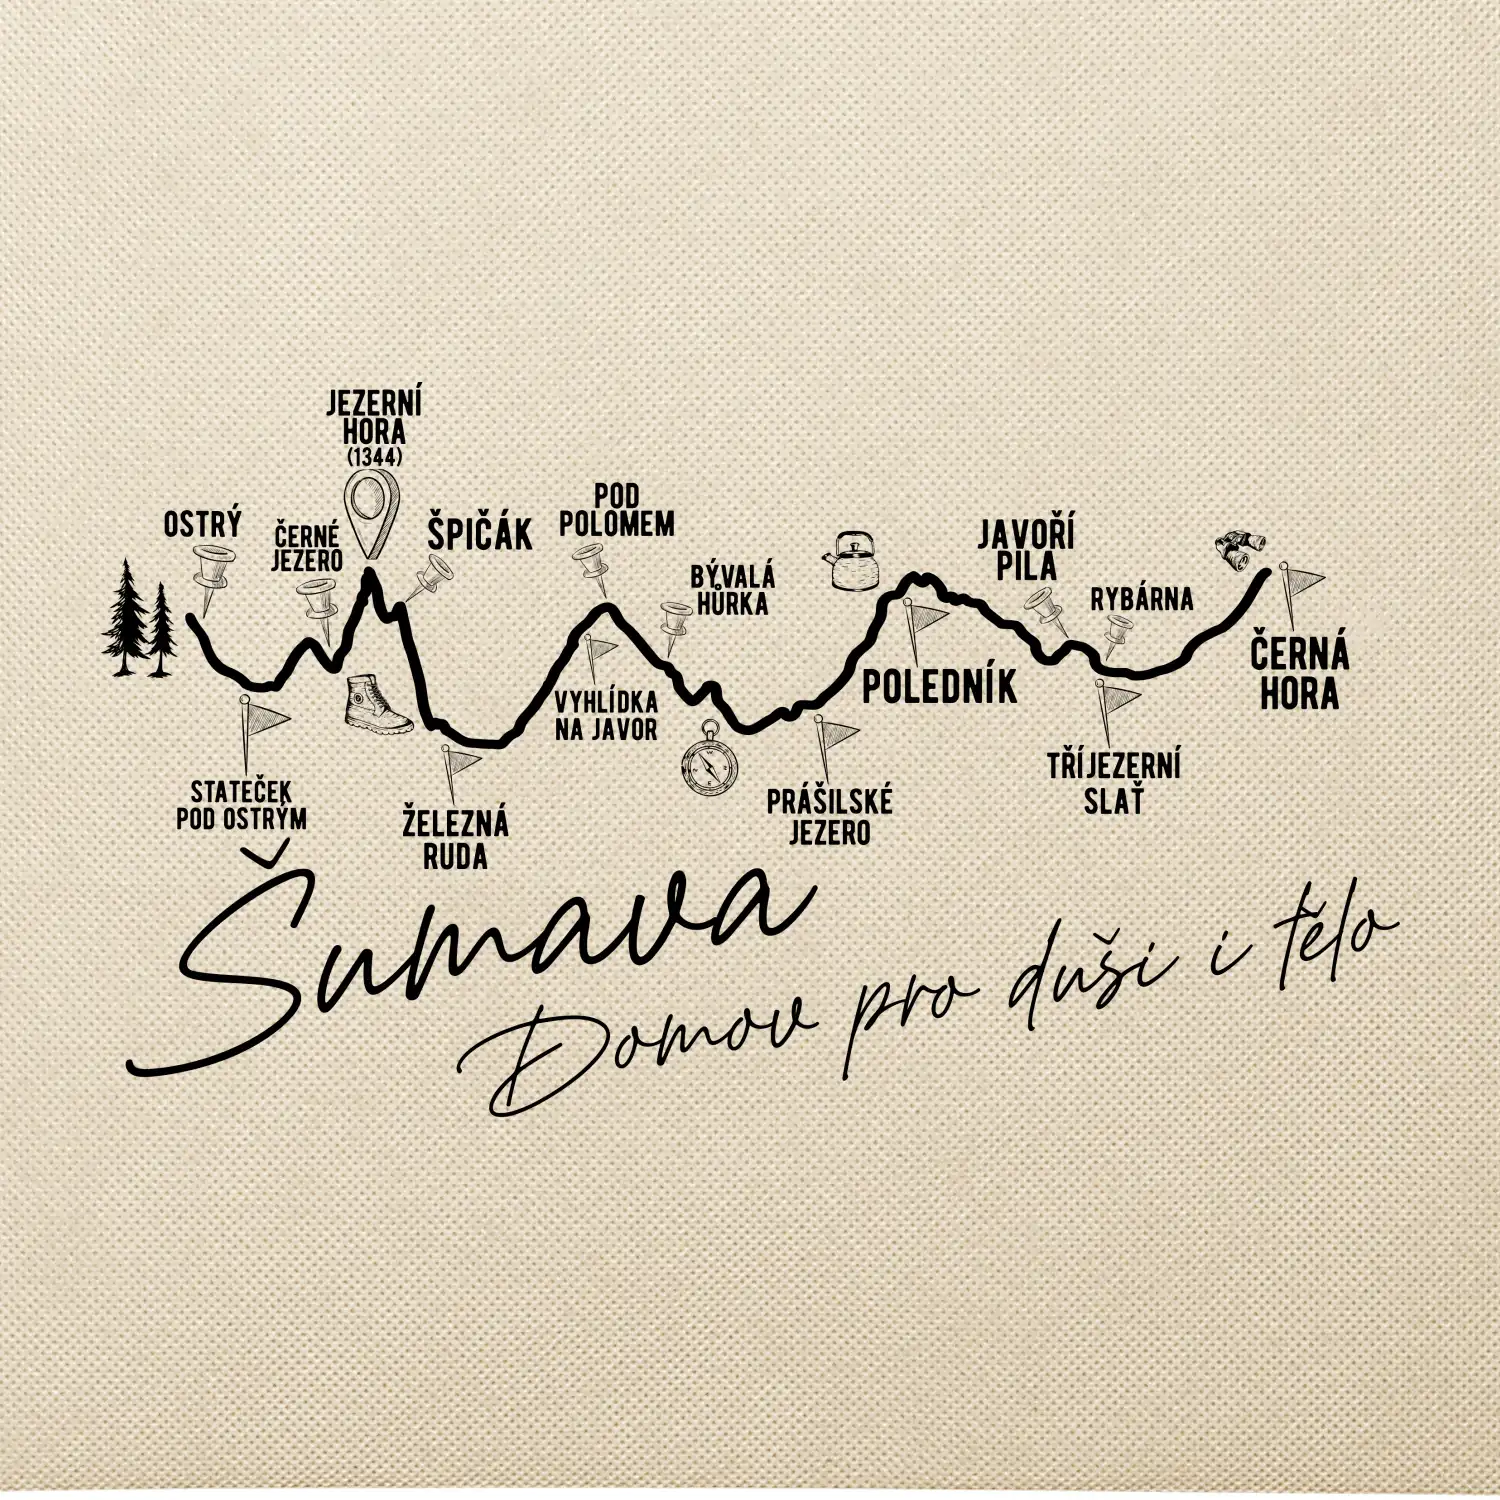 JEZERNÍ
HORA
(1344)
OSTRÝ
ČERNÉ
JEZERO
ŠPIČÁK
POD
POLOMEM
BÝVALÁ
HŮRKA
JAVOŘÍ
PILA
RYBÁRNA
ČERNÁ
HORA
POLEDNÍK
VYHLÍDKA
NA JAVOR
TŘÍJEZERNÍ
SLAŤ
STATEČEK
POD OSTRÝM
ŽELEZNÁ
RUDA
PRÁŠILSKÉ
JEZERO
Šumava
Domov pro duši i tělo